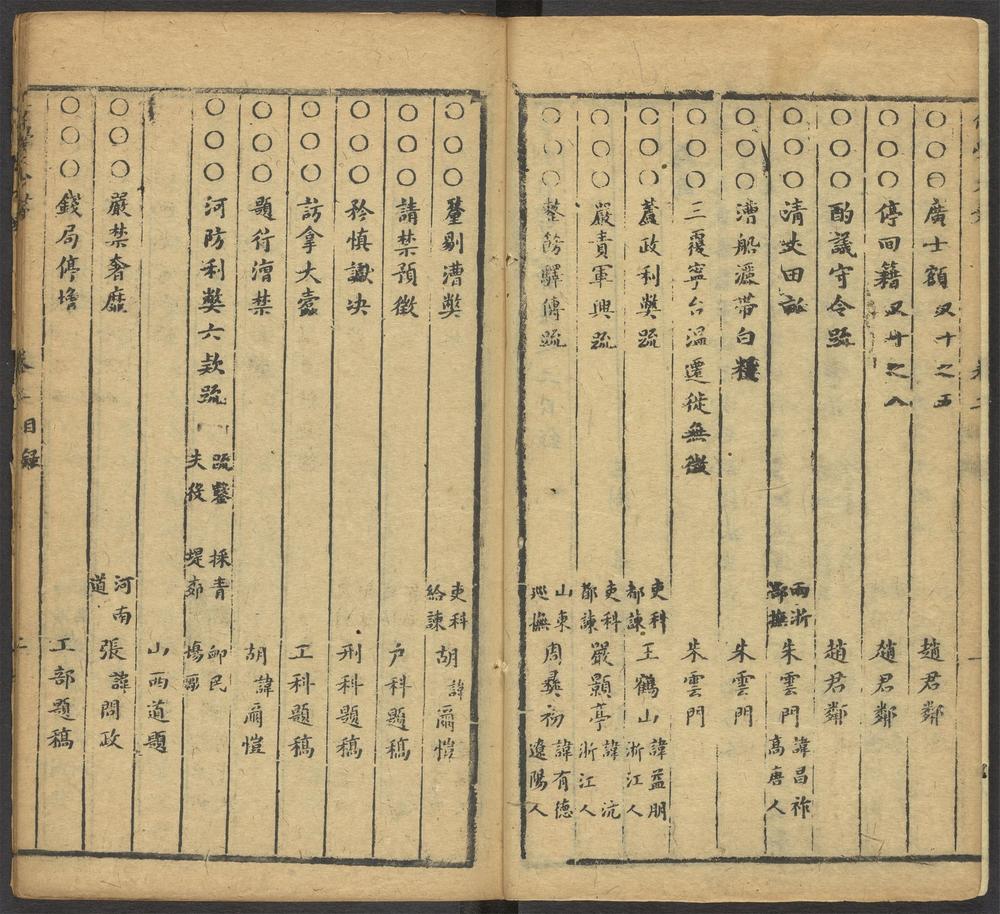 ○○○廣士額 又十之五 趙君鄰
○○○停回籍 又廿之八 趙君鄰
○○○酌議守令疏 趙君鄰
○○○清丈田 兩浙都撫 朱雲門 諱昌祚 高唐人
○○○漕船源帶白糧 朱雲門
○○○三覆寧台溫遷徙無徵 朱雲門
○○○蓋政利獘疏 吏科都諫 王鶴山 諱益朋 浙江人
○○○嚴責軍興疏 吏科都諫 嚴顥亭 諱沆 浙江人
○○○整飭驛傳疏 山東巡撫 周彝初 諱有德 遼陽人
○○○釐剔漕獘 吏科給諫 胡諱爾愷
○○○請禁預徵 户科題稿
○○○矜慎讞决 刑科題稿
○○○訪拿大蠹 工科題稿
○○○題行漕禁 胡諱爾愷
○○○河防利獘六欵疏 疏鑿 夫役 採青 堤 卹民
山西道題
○○○嚴禁奢靡 河南道 張諱問政
○○○錢局停 工部題稿
卷 目錄